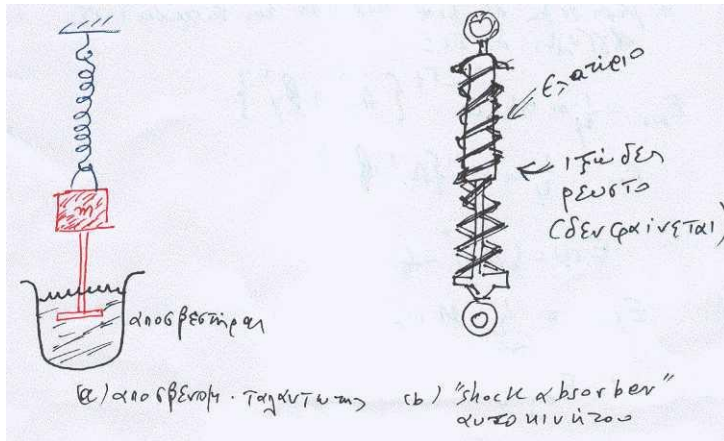 m
αποσβεστήρας
ελατήριο
ιξώδες
ρευστό
(δεν φαίνεται)
(α) αποσβενομ. ταλαντωτής
(b) "shock absorber"
αυτοκινήτου